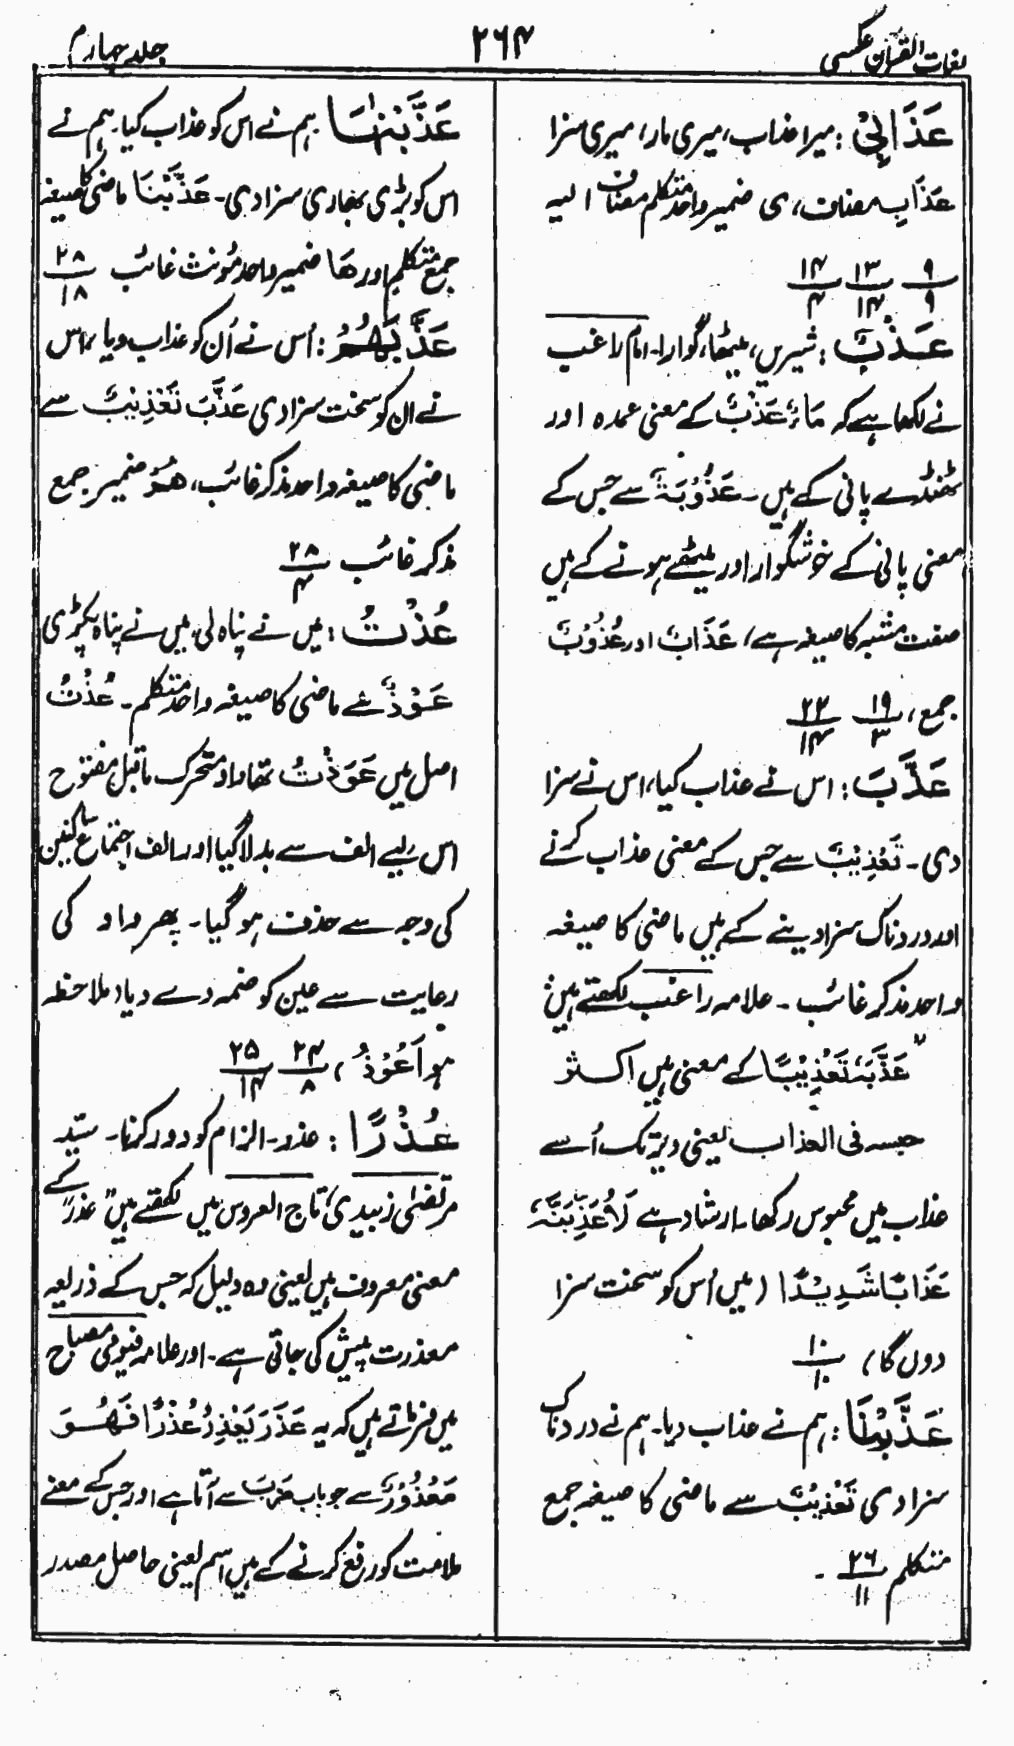 لغات القرآن عکسی
۲۶۴
جلد چہارم
عَذَابِیْ: میرا عذاب، میری مار، میری سزا
عَذَابِ مضاف، ی ضمیر واحد متکلم مضاف الیہ
۹/۹ ۱۳/۱۴ ۱۴/۴
عَذْبٌ: شیریں، میٹھا، گوارا۔ امام راغب
نے لکھا ہے کہ مَاءٌ عَذْبٌ کے معنی عمدہ اور
ٹھنڈے پانی کے ہیں۔ عَذُوْبَۃٌ سے جس کے
معنی پانی کے خوشگوار اور میٹھے ہونے کے ہیں
صفت مشبہ کا صیغہ ہے، عَذَابٌ اور عُذُوْبٌ
جمع، ۱۹/۳ ۲۲/۱۴
عَذَّبَ: اس نے عذاب کیا، اس نے سزا
دی۔ تَعْذِیْبٌ سے جس کے معنی عذاب کرنے
اور دردناک سزا دینے کے ہیں ماضی کا صیغہ
واحد مذکر غائب۔ علامہ راغب لکھتے ہیں:
”عَذَّبَہٗ تَعْذِیْبًا کے معنی ہیں اکثر
حبسہ فی العذاب یعنی دیر تک اُسے
عذاب میں محبوس رکھا۔ ارشاد ہے لَاُعَذِّبَنَّہٗ
عَذَابًا شَدِیْدًا (میں اُس کو سخت سزا
دوں گا) ۱۰/۱۰
عَذَّبْنَا: ہم نے عذاب دیا۔ ہم نے دردناک
سزا دی تَعْذِیْبٌ سے ماضی کا صیغہ جمع
متکلم ۲۶/۱۱ ۔
عَذَّبْنٰہَا ہم نے اس کو عذاب کیا۔ ہم نے
اس کو بڑی بھاری سزا دی۔ عَذَّبْنَا ماضی کا صیغہ
جمع متکلم اور ھَا ضمیر واحد مؤنث غائب ۲۸/۱۸
عَذَّبَہُمْ: اُس نے اُن کو عذاب دیا، اس
نے ان کو سخت سزا دی عَذَّبَ تَعْذِیْبٌ سے
ماضی کا صیغہ واحد مذکر غائب، ھُمْ ضمیر جمع
مذکر غائب ۲۸/۴
عُذْتُ: میں نے پناہ لی، میں نے پناہ پکڑی
عَوْذٌ سے ماضی کا صیغہ واحد متکلم۔ عُذْتُ
اصل میں عَوَذْتُ تھا واؤ متحرک ماقبل مفتوح
اس لیے الف سے بدلا گیا اور الف اجتماع ساکنین
کی وجہ سے حذف ہو گیا۔ پھر واو کی
رعایت سے عین کو ضمہ دے دیا (ملاحظہ
ہو اَعُوْذُ)، ۲۴/۸ ۲۵/۱۴
عُذْرًا: عذر۔ الزام کو دور کرنا۔ سیّد
مرتضیٰ زبیدی، تاج العروس میں لکھتے ہیں ”عذرٌ کے
معنی معروف ہیں یعنی وہ دلیل کہ جس کے ذریعہ
معذرت پیش کی جاتی ہے۔ اور علامہ فیومی مصباح
میں فرماتے ہیں کہ یہ عَذَرَ یَعْذِرُ عُذْرًا فَہُوَ
مَعْذُوْرٌ سے جو باب ضَرَبَ سے آتا ہے اور جس کے معنے
ملامت کو رفع کرنے کے ہیں اسم یعنی حاصل مصدر